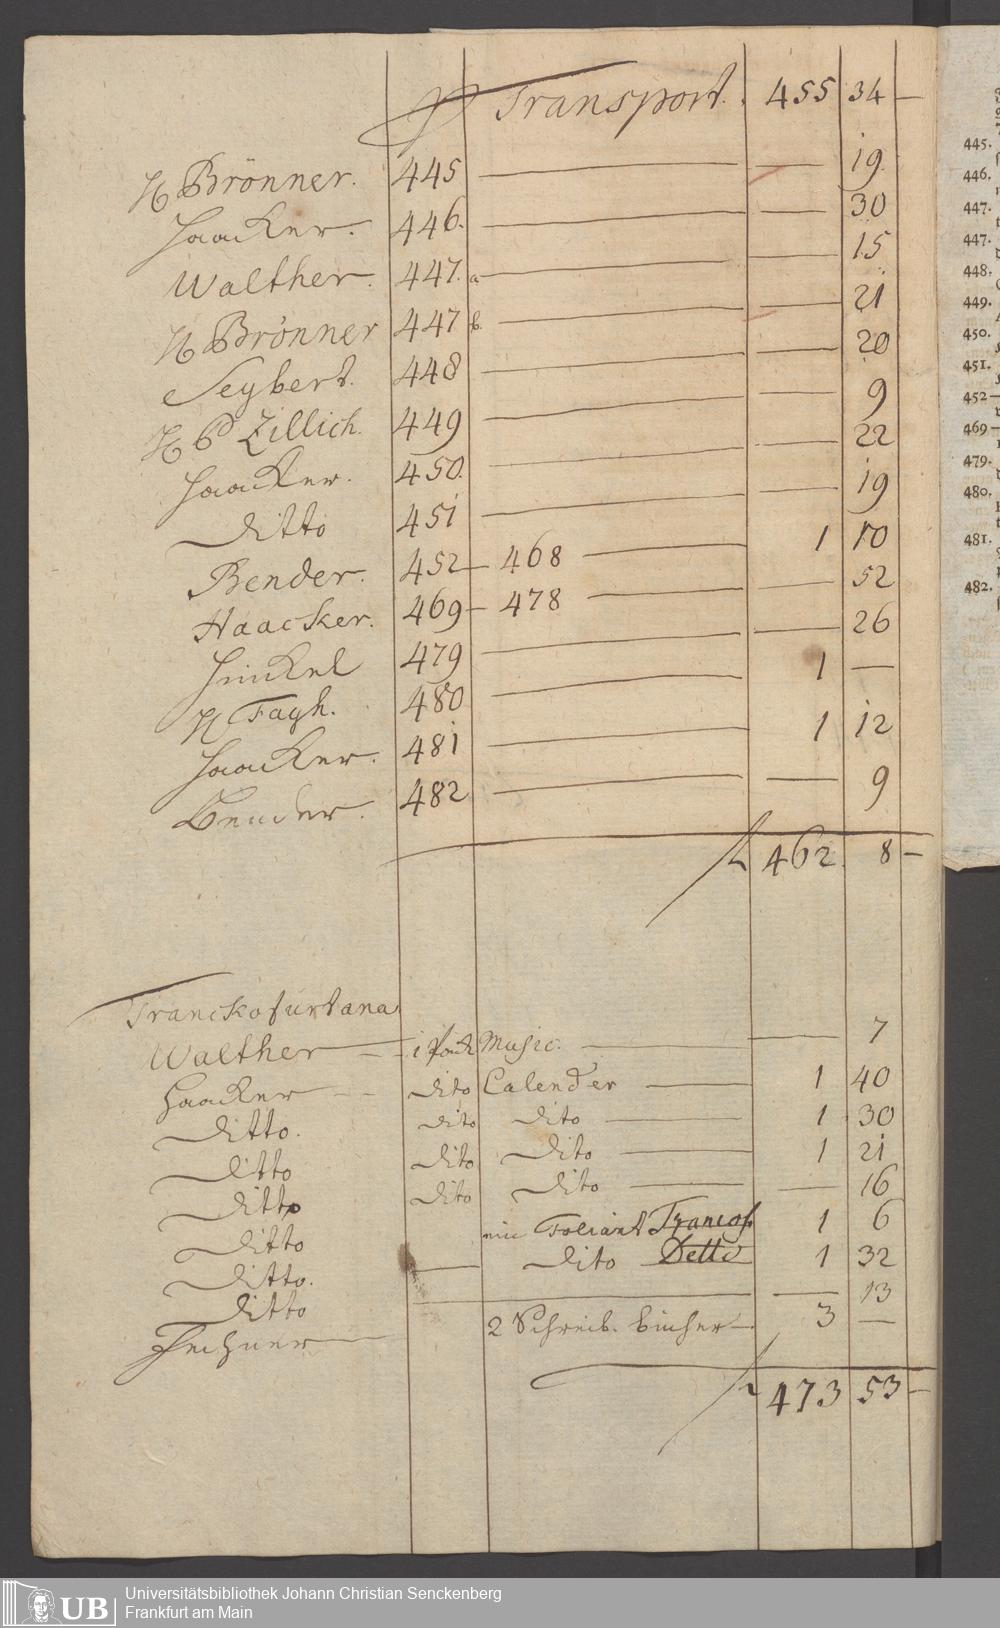 Transport. 455 34 —
H Brönner. 445 — — 19.
Haacker. 446. — — 30
Walther. 447. a — — 15
H Brönner 447 b. — — 21
Seybert. 448 — — 20
H Zillich. 449 — — 9
Haacker. 450. — — 22
Ditto 451 — — 19
Bender. 452 — 468 — 1 10
Haacker. 469 — 478 — — 52
Hinckel 479 — — 26
H Fayh. 480 — 1 —
Haacker. 481 — 1 12
Bender. 482 — — 9
462. 8 —
Franckofurtana
Walther — 1 Music. — — 7
Haacker — dito Calender — 1 40
Ditto. dito dito — 1 30
Ditto dito dito — 1 21
Ditto dito dito — — 16
Ditto ein Foliant Francof. 1 6
Ditto. — dito Detto 1 32
Ditto — — 13
Fechner — 2 Schreib. bücher — 3 —
473 53 —
445.
446.
447.
447.
448.
449.
450.
451.
452—
469—
479.
480.
481.
482.
UB
Universitätsbibliothek Johann Christian Senckenberg
Frankfurt am Main